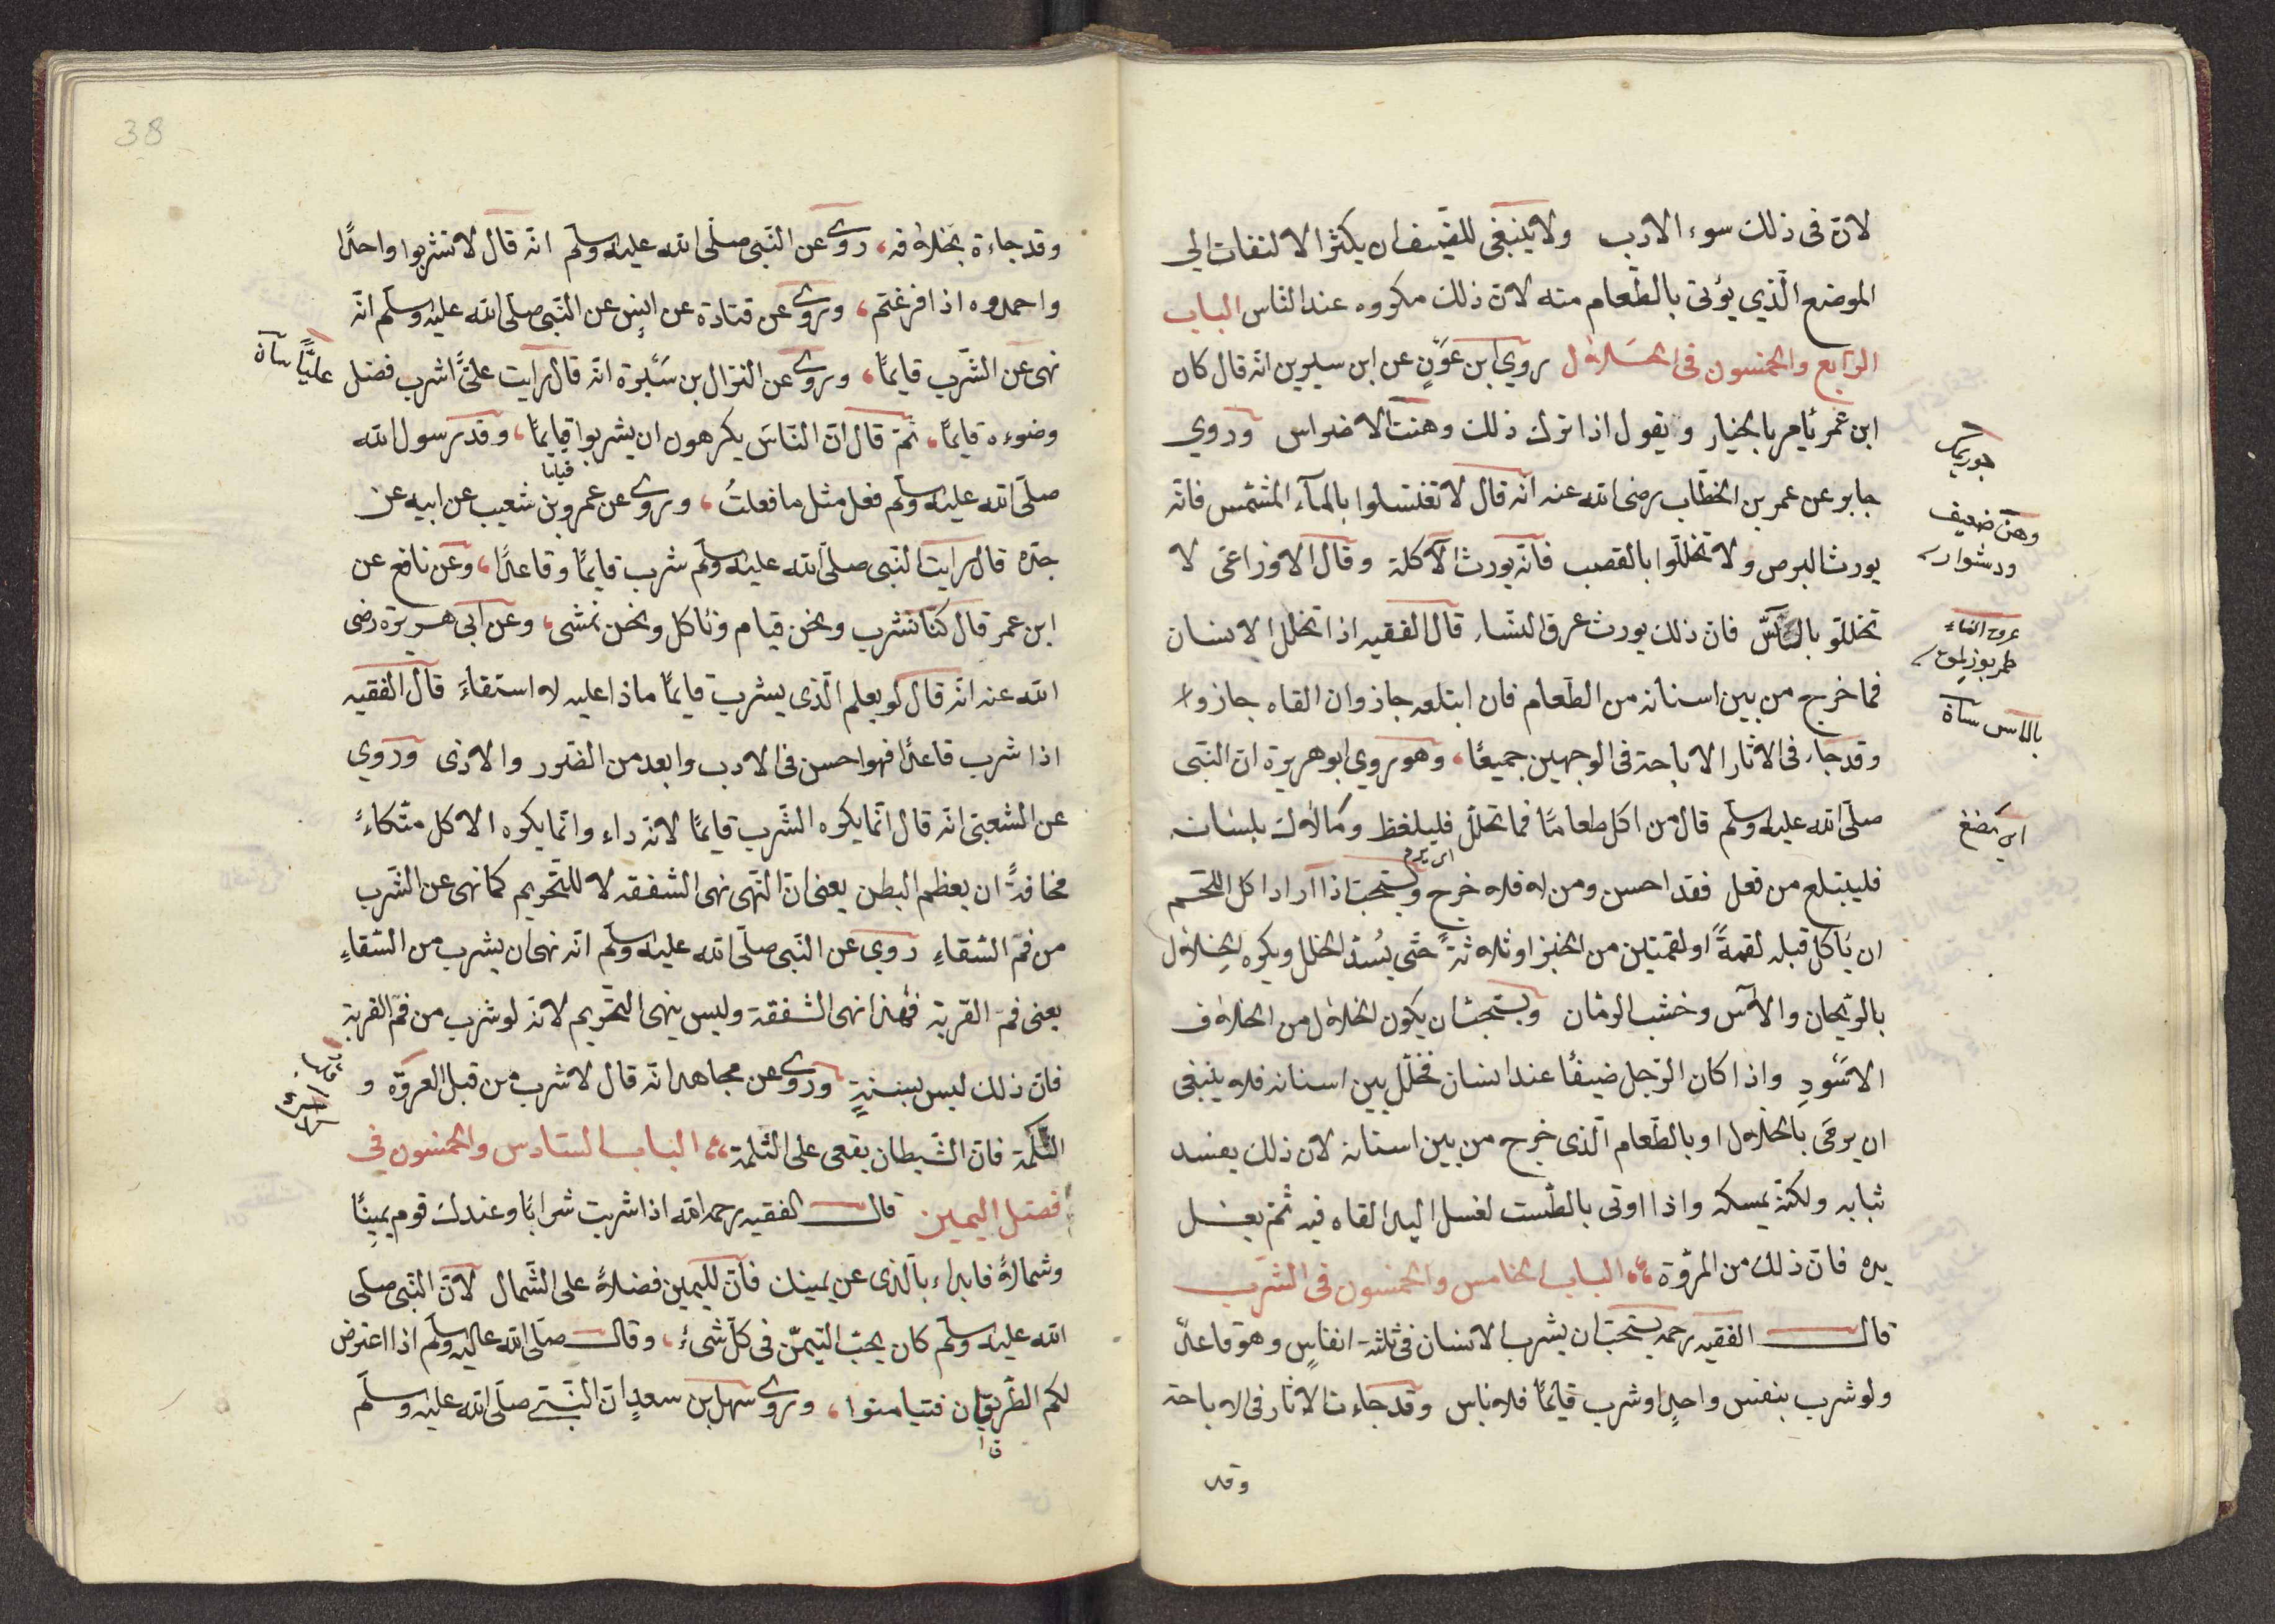 لان فى ذلك سوء الادب ولا ينبغى للضيف ان يكثر الالتفات الى
الموضع الّذي يؤتى بالطّعام منه لانّ ذلك مكروه عند الناس الباب
الرّابع والخمسون فى الخلال روي ابن عَوْنٍ عن ابن سيرين انّه قال كان
ابن عمر يأمر بالخيار ويقول اذا ترك ذلك وهنت الاضراس وروي
جابر عن عمر بن الخطّاب رضى الله عنه انّه قال لا تغتسلوا بالمآء المشمّس فانّه
يورث البرص ولا تخللّوا بالقصب فانّه يورث الآكلة وقال الاوزاعى لا
تخللّو بالآسّ فان ذلك يورث عرق النسّاء قال الفقيه اذا تخلل الانسان
فما خرج من بين اسنانه من الطّعام فان ابتلعه جاز وان القاه جاز و
قد جاء فى الاثار الاباحة فى الوجهين جميعًا، وهو روي ابو هريرة انّ النّبى
صلّى الله عليه وسلّم قال من اكل طعامًا فما تخلّل فليلفظ وما لاك بلسانه
فليبتلع من فعل فقد احسن ومن لا فلا خرج ويستحبّ اذا اراد اكل اللّحم
ان ياكل قبله لقمةً او لقمتين من الخبز او ثلاثةً حتّى يُسدّ الخلل ويكره الخِلال
بالرّيحان والآس وخشب الرمّان ويستحبّ ان يكون الخلال من الخلاف
الاسْودِ واذا كان الرّجل ضيفًا عند انسان فخلّل بين اسنانه فلا ينبغى
ان يرمَى بالخلال او بالطّعام الّذى خرج من بين اسنانه لان ذلك يفسد
ثيابه ولكنّه يمسكه واذا اوتى بالطّست لغسل اليد القاه فيه ثمّ يغسل
يده فانّ ذلك من المرّوة الباب الخامس والخمسون فى الشّرب
قال الفقيه رحمه يستحبّ ان يشرب الانسان فى ثلثة انفاسٍ وهو قاعدٌ
ولو شرب بنفس واحدٍ او شرب قايمًا فلا باس وقد جاءت الاثار فى الاباحة
وقد
وهن ضعيف
ودشوار
عرق النساء
بالاس سآة
اى يمضغ
38
وقد جاءة بخلافه، روى عن النّبى صلّى الله عليه وسلّم انّه قال لا تشربوا واحدًا
واحمدوه اذا فرغتم، وروى عن قتادة عن انسٍ عن النّبى صلّى الله عليه وسلّم انّه
نهى عن الشّرب قايمًا، وروى عن النزال بن سَبْرة انّه قال رايت علىًّ اشرب فضل عليًّا سآة
وضوءه قايمًا، ثمّ قال انّ النّاسَ يكرهون ان يشربوا قايمًا، وقد رسول الله
قياما
صلّى الله عليه وسلّم فعل مثل ما فعلتُ، وروى عن عمرو بن شعيب عن ابيه عن
جدّه قال رايت النّبى صلّى الله عليه وسلّم شرب قايمًا وقاعدًا، وعن نافع عن
ابن عمر قال كنّا نشرب ونحن قيام ونأكل ونحن نمشى، وعن ابى هريرة رضى
الله عنه انّه قال لو يعلم الّذى يشرب قايمًا ماذا عليه لا استقاءَ قال الفقيه
اذا شرب قاعدًا فهو احسن فى الادب وابعد من الضّرر والاذى وروي
عن الشعبىّ انّه قال انّما يكره الشّرب قايمًا لانّه داء وانّما يكره الاكل متّكاءً
مخافةً ان يعظم البطن يعنى انّ النّهى نهى الشفقه لا للتّحريم كما نهى عن الشّرب
من فمّ السّقاءِ روي عن النّبى صلّى الله عليه وسلّم انّه نهى ان يشرب من السّقاءِ
يعنى فمّ القربة فهٰذا نهى الشفقة وليس بنهى التّحريم لانه لو شرب من فمّ القربة
فانّ ذلك ليس بسنةٍ وروى عن مجاهد انّه قال لا شرب من قبل العروّه و
الثّلمة فانّ الشّيطان يقعى على الثّلمة، الباب السّادس والخمسون فى
فضل اليمين قال الفقيه رحمه الله اذا شربت شرابًا وعندك قوم يمينًا
وشمالاً فابداء بالّذى عن يمينك فانّ لليمين فضلاً على الشّمال لانّ النّبى صلى
الله عليه وسلّم كان يحبّ التيمّن فى كلّ شىءٍ، وقال صلّى الله عليه وسلّم اذا اعترض
لكم الطّريقان فتيامنوا، وروى سهل بن سعدٍ انّ النّبى صلّى الله عليه وسلّم